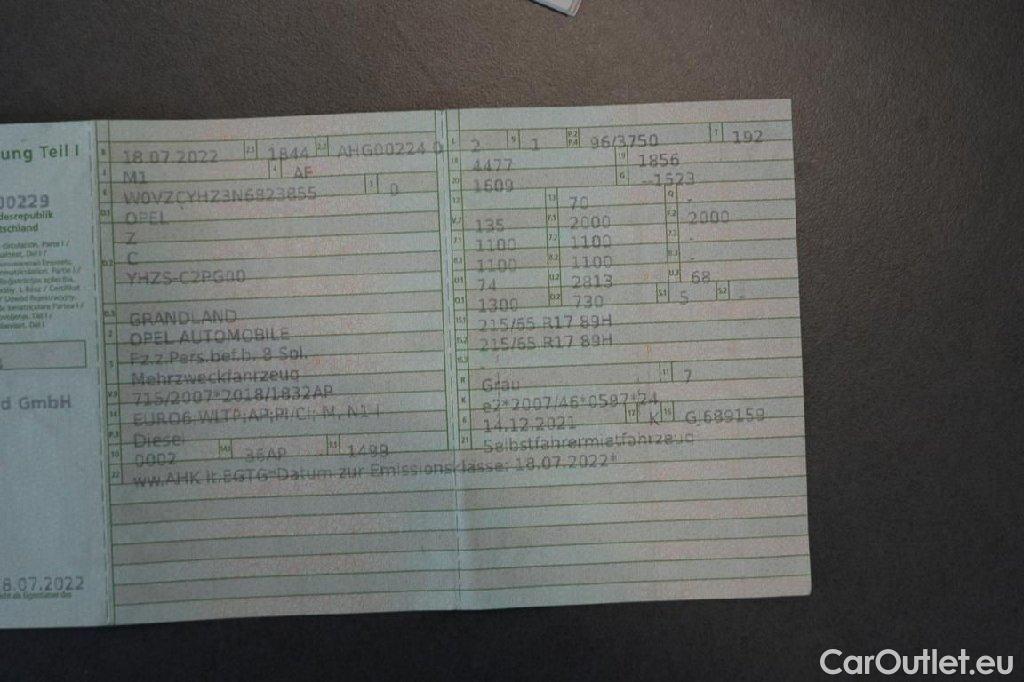 ung Teil I
00229
desrepublik
tschland
d GmbH
8.07.2022
B 18.07.2022 2.1 1844 2.2 AHG00224 0
J M1 4 AF
E W0VZCYHZ3N6823855 3 0
D.1 OPEL
Z
D.2 C
YHZS-C2PG00
D.3 GRANDLAND
2 OPEL AUTOMOBILE
5 Fz.z.Pers.bef.b. 8 Spl.
Mehrzweckfahrzeug
V.9 715/2007*2018/1832AP
14 EURO6;WLTP;AP;PI/CI; M, N1 I
P.3 Diesel
10 0002 14.1 36AP P.1 1499
22 ww.AHK lt.EGTG*Datum zur Emissionsklasse: 18.07.2022*
L 2 9 1 P.2 P.4 96/3750 T 192
18 4477 19 1856
20 1609 G -1523
12 - 13 70 Q -
V.7 135 F.1 2000 F.2 2000
7.1 1100 7.2 1100 7.3 -
8.1 1100 8.2 1100 8.3 -
U.1 74 U.2 2813 U.3 68
O.1 1300 O.2 730 S.1 5 S.2 -
15.1 215/65 R17 99H
15.2 215/65 R17 99H
15.3 -
R Grau 11 7
K e2*2007/46*0597*24
6 14.12.2021 17 K 16 G.689159
21 Selbstfahrermietfahrzeug
CarOutlet.eu